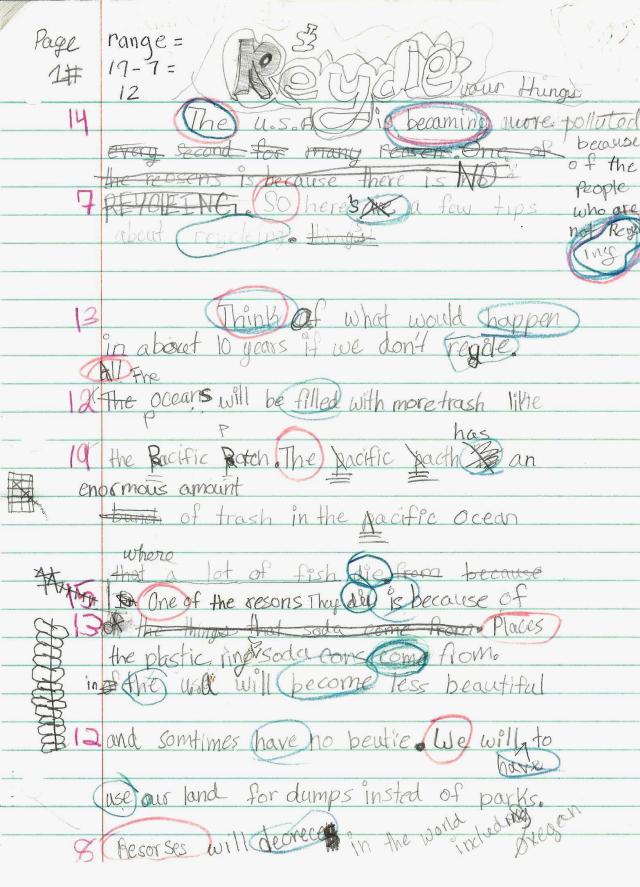 Page 1#
range =
19-7=
12
Reycle your things
14 The U.S.A is becaming more polluted
every second for many reasens. One of because
the reasens is because there is NO of the
7 REYCLEING. SO here's a few tips People who are
about recycleing. things not Recy
ing
13 Think of what would happen
in about 10 years if we don't recycle.
All The
12 The oceans will be filled with more trash like
P P
19 the Pacific Patch. The Pacific Pacth has an
enormous amount
of trash in the Pacific Ocean
where
that a lot of fish die from because
15 One of the resons They die is because of
13 the things that soda come from. Places
the plastic rings soda cans come from.
in the U.S.A will become less beautiful
12 and somtimes have no beutie. We will to
have
use our land for dumps insted of parks.
8 Resorses will decrece in the world including Oxegan